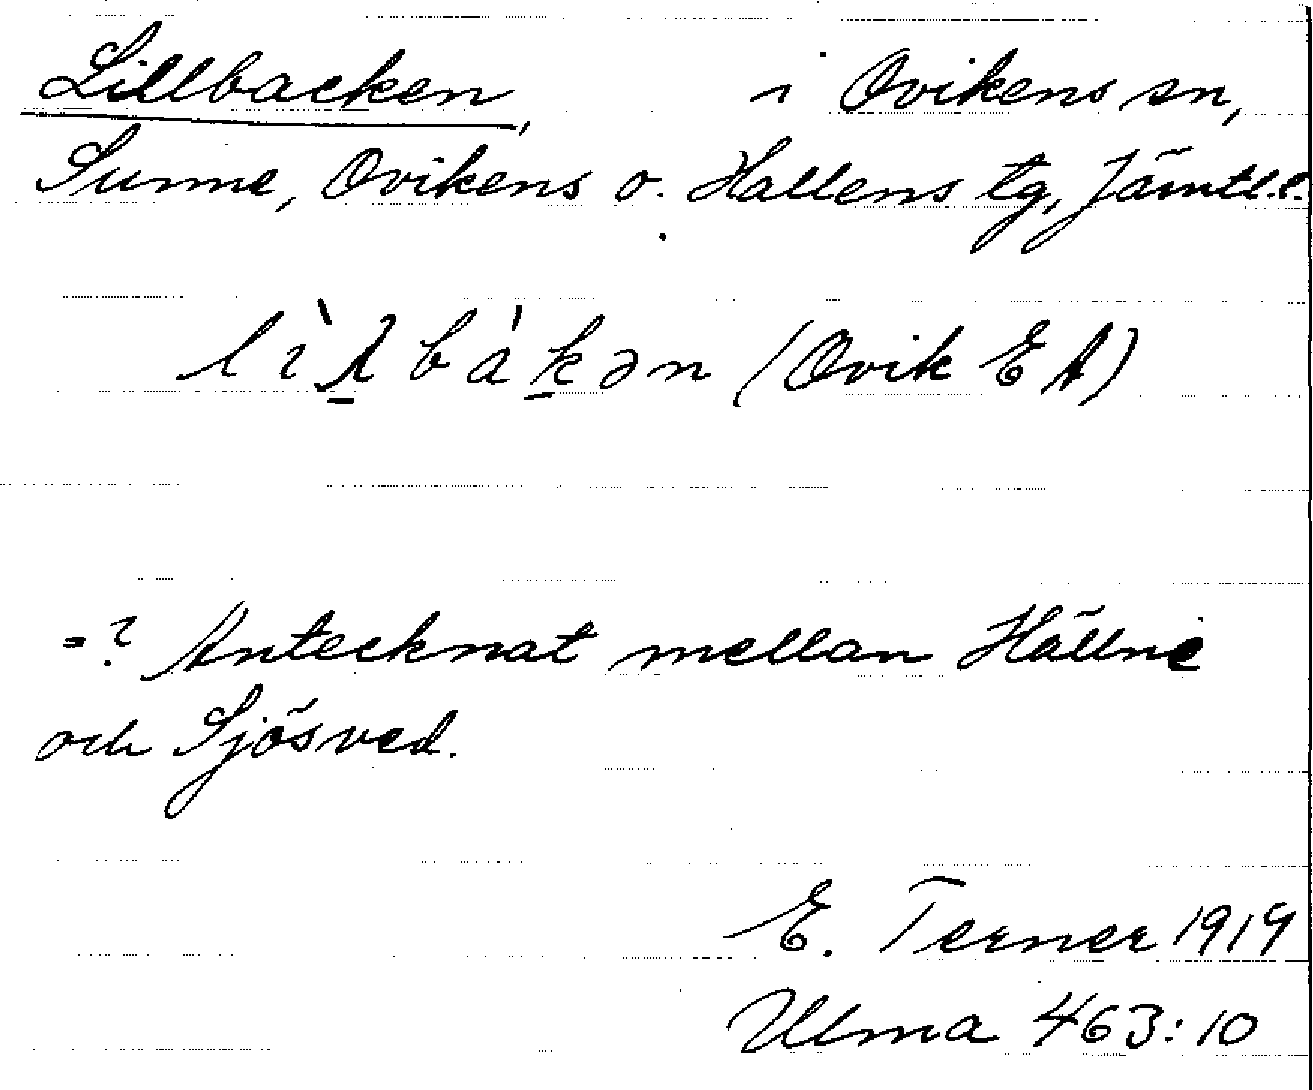 Lillbacken, i Ovikens sn,
Sunne, Ovikens o. Hallens tg, Jämtl.l.
lìl̲bàk̲ən (Ovik EA)
=? Antecknat mellan Hällne
och Sjösved.
E. Terner 1919
Ulma 463:10